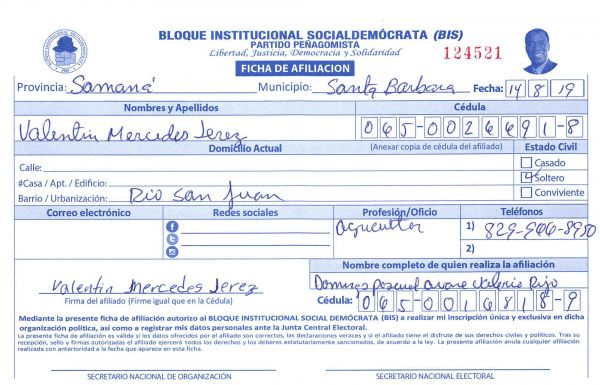 BLOQUE INSTITUCIONAL SOCIALDEMÓCRATA (BIS)
PARTIDO PEÑAGOMISTA
Libertad, Justicia, Democracia y Solidaridad
124521
FICHA DE AFILIACION
Provincia: Samaná Municipio: Santa Barbara Fecha: 14 8 19
Nombres y Apellidos Cédula
Valentin Mercedes Jerez 065-0026691-8
Domicilio Actual (Anexar copia de cédula del afiliado) Estado Civil
Calle: Casado
#Casa / Apt. / Edificio: Soltero
Barrio / Urbanización: Rio San Juan Conviviente
Correo electrónico Redes sociales Profesión/Oficio Teléfonos
Agricultor 1) 829-966-8950
2)
Nombre completo de quien realiza la afiliación
Valentin Mercedes Jerez Domingo Pascual Valerio Rijo
Firma del afiliado (Firme igual que en la Cédula) Cédula: 065-0016818-9
Mediante la presente ficha de afiliación autorizo al BLOQUE INSTITUCIONAL SOCIAL DEMÓCRATA (BIS) a realizar mi inscripción única y exclusiva en dicha
organización política, así como a registrar mis datos personales ante la Junta Central Electoral.
La presente ficha de afiliación es válida y los datos ofrecidos por el afiliado son correctos, las declaraciones veraces y si el afiliado tiene el disfrute de sus derechos civiles y políticos. Tras su
recepción, sello y firmas autorizadas el afiliado ejercerá todos los derechos y los deberes estatutariamente sancionados, de acuerdo a la ley. La presente afiliación anula cualquier afiliación
realizada con anterioridad a la fecha que aparece en esta ficha.
SECRETARIO NACIONAL DE ORGANIZACIÓN SECRETARIO NACIONAL ELECTORAL